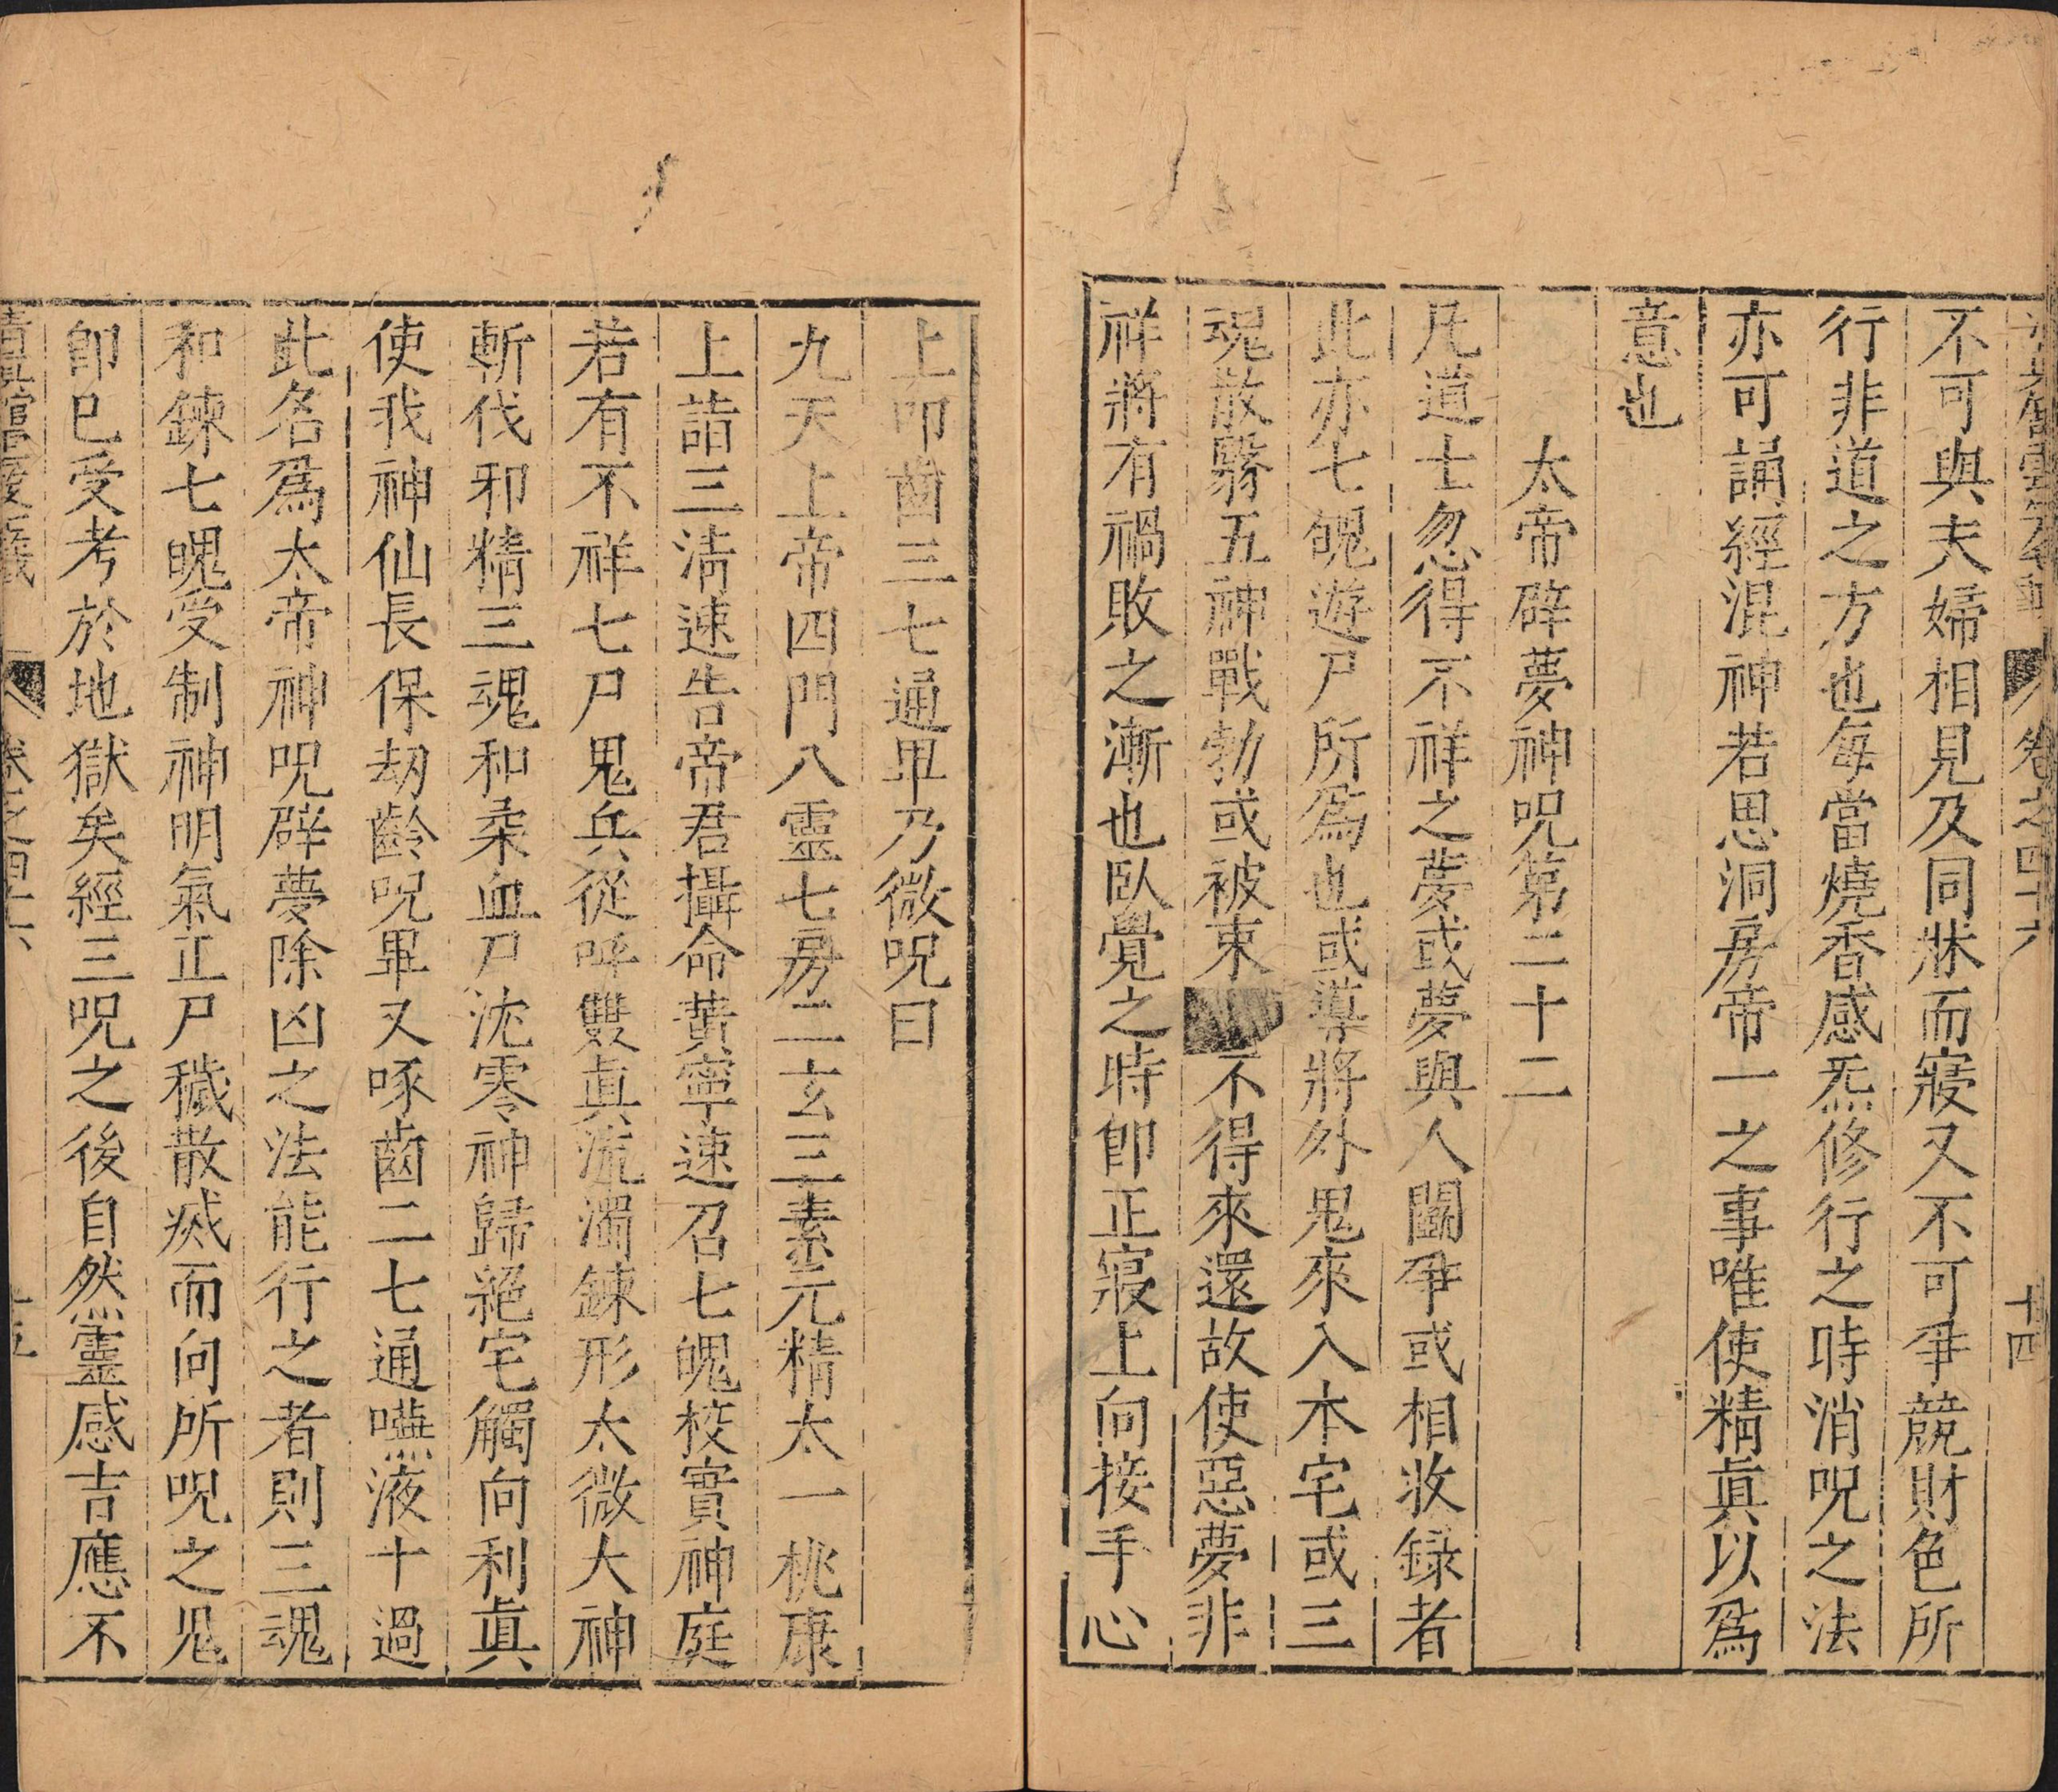 卷之四十六
十四
不可與夫婦相見及同牀而寢又不可爭競財色所
行非道之方也每當燒香感炁修行之時消呪之法
亦可誦經混神若思洞房帝一之事唯使精眞以爲
意也
太帝辟夢神呪第二十二
凡道士忽得不祥之夢或夢與人鬭爭或相收錄者
此亦七魄遊尸所爲也或導將外鬼來入本宅或三
魂散翳五神戰勃或被束不得來還故使惡夢非
祥將有禍敗之漸也臥覺之時卽正寢上向接手心
上叩齒三七通畢乃微呪曰
九天上帝四門八靈七房二玄三素元精太一桃康
上詣三淸速告帝君攝命黃寧速召七魄校實神庭
若有不祥七尸鬼兵從呼雙眞流濁鍊形太微大神
斬伐邪精三魂和柔血尸沈零神歸絕宅觸向利眞
使我神仙長保劫齡呪畢又啄齒二七通嚥液十過
此名爲太帝神呪辟夢除凶之法能行之者則三魂
和鍊七魄受制神明氣正尸穢散烕而向所呪之鬼
卽已受考於地獄矣經三呪之後自然靈感吉應不
卷之四十六